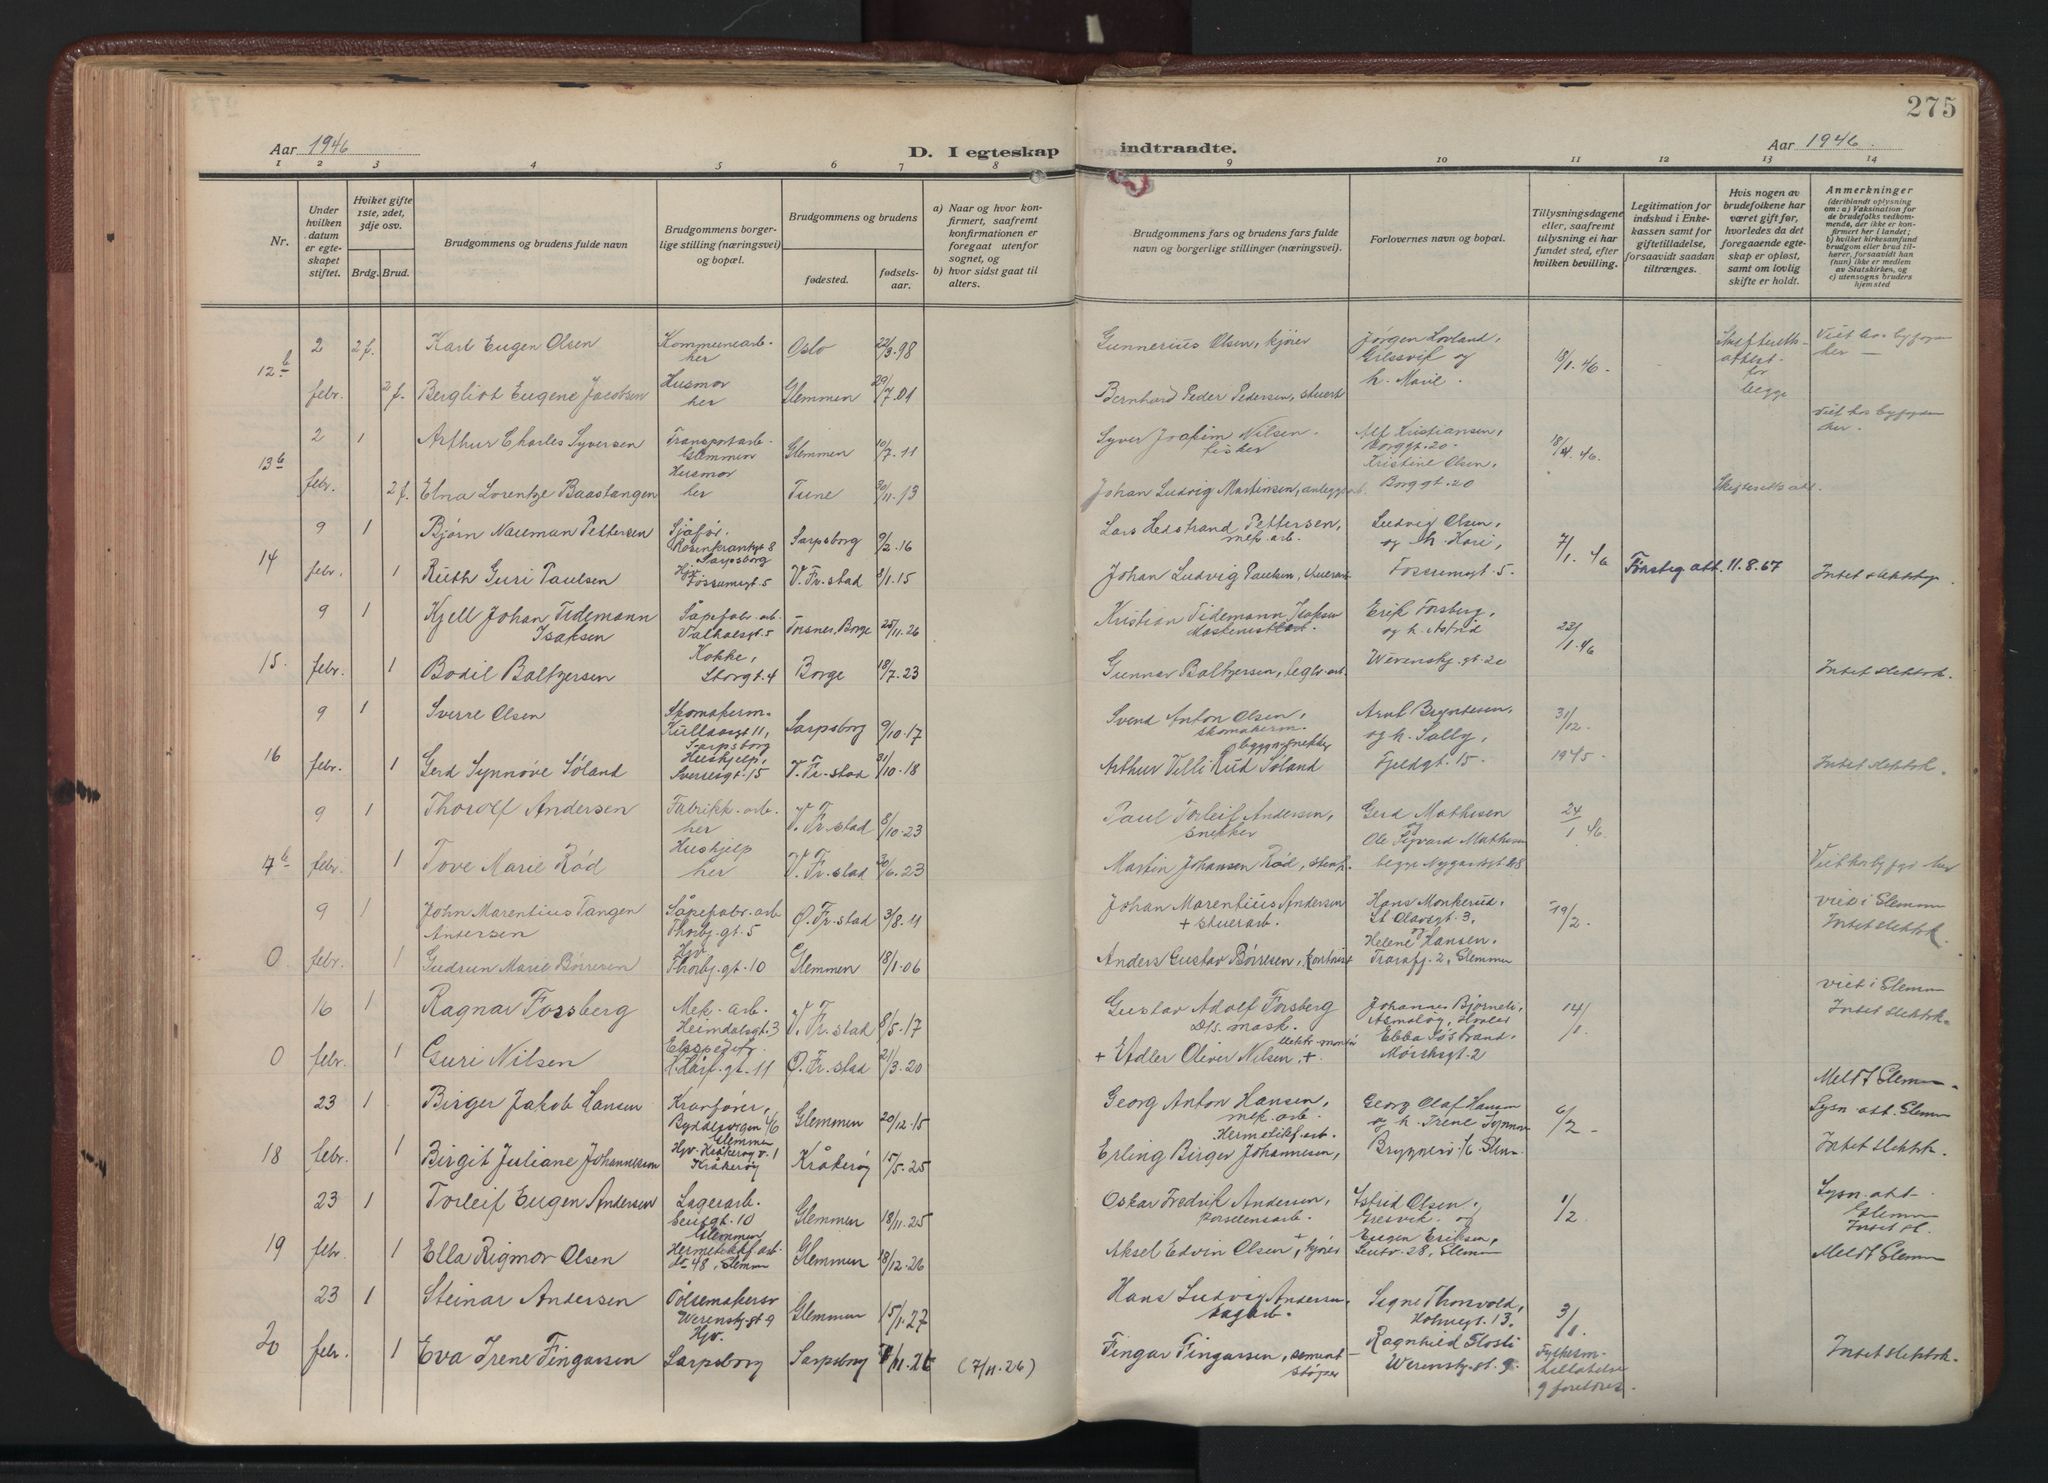 275
Aar 1946
D. I egteskap indtraadte.
Aar 1946.
1 2 3 4 5 6 7 8 9 10 11 12 13 14
Nr.
Under hvilken datum er egteskapet stiftet.
Hviket gifte 1ste, 2det, 3dje osv.
Brdg. Brud.
Brudgommens og brudens fulde navn
Brudgommens borgerlige stilling (næringsvei) og bopæl.
Brudgommens og brudens
fødested.
fødselsaar.
a) Naar og hvor konfirmert, saafremt konfirmationen er foregaat utenfor sognet, og
b) hvor sidst gaat til alters.
Brudgommens fars og brudens fars fulde navn og borgerlige stillinger (næringsvei).
Forlovernes navn og bopæl.
Tillysningsdagene eller, saafremt tillysning ei har fundet sted, efter hvilken bevilling.
Legitimation for indskud i Enkekassen samt for giftetilladelse, forsaavidt saadan tiltrænges.
Hvis nogen av brudefolkene har været gift før, hvorledes da det foregaaende egteskap er opløst, samt om lovlig skifte er holdt.
Anmerkninger (deriblandt oplysning om: a) Vaksination for de brudefolks vedkommende, der ikke er konfirmert her i landet; b) hvilket kirkesamfund brudgom eller brud tilhører, forsaavidt han (hun) ikke er medlem av Statskirken, og c) utensogns bruders hjemsted
12 b 2 2 f. Karl Eugen Olsen Kommunearb. her Oslo 22/3.98 Gunnerius Olsen, kjører Jørgen Lovland, Gressvik og h. Marie. 18/1.46. Skifteretts-attest for begge Viet hos byfogden her
febr. 2 f. Bergliot Eugene Jacobsen Husmor her Glemmen 29/7.01 Bernhard Peder Pedersen, stuert
13 b 2 1 Arthur Charles Syversen Transportarb. Glemmen Glemmen 10/7.11 Syver Joakim Nilsen. fisker Alf Kristiansen, Borggt. 20 Viet hos byfogden her.
febr. 2 f. Elna Lorentze Baastangen Husmor her Tune 30/11.13 Johan Ludvig Martinsen, Kristine Olsen, Borggt. 20 Skifteretts att.
14 9 1 Bjørn Nauman Pettersen Sjåfør. Rosenkrantzgt 8 Sarpsborg Sarpsborg 9/2.16 Lars Hedstrand Pettersen, mek. arb. Ludvig Olsen, og h. Kari, Fossumsgt. 5. 7/1.46 Førsteg att. 11.8.67
febr. 1 Ruth Guri Paulsen Hjv. Fossumsgt. 5 V. Fr.stad 8/1.15 Johan Ludvig Paulsen, stuerarb
15. 9 1 Kjell Johan Tidemann Isaksen Såpefabr. arb. Valhalsgt. 5 Torsnes, Borge 25/11.26 Kristian Tidemann Isaksen Maskinist Erik Forsberg, og h. Astrid Werenskj. gt. 2c 22/1.46
febr. 1 Bodil Baltzersen Kokke, Storgt. 4 Borge 18/7.23 Gunnar Baltzersen, teglv. arb. Intet slektsk.
16 9 1 Sverre Olsen Skomakerm. Sarpsborg Sarpsborg 9/10.17 Svend Anton Olsen, skomakerm. og h. Sally, Fjeldgt. 15. 31/12 1945.
febr. 1 Gerd Synnøve Søland Hushjelp, Sverresgt. 15 V. Fr.stad 31/10.18 Arthur Villi Rud Søland byggn. snekker Intet slektsk.
9 1 Thorolf Andersen Fabrikk. arb. her V. Fr.stad 8/10.23 Paul Torleif Andersen, snekker Gerd Mathisen og Ole Sigvard Mathisen 24/1 46.
febr. 1 Tove Marie Rød Hushjelp her V. Fr.stad 30/6.23 Martin Johansen Rød,
0 9 1 John Marentius Tangen Andersen Såpefabr. arb Thorbj. gt. 5 Ø. Fr.stad 3/8.11 Johan Marentius Andersen + stuerarb. Hans Monkerud, St. Olavsgt. 3, og viet i Glemm Intet slektsk.
febr. 1 Gudrun Marie Børresen Hjv Thorbj. gt. 10 Glemmen 18/1.06 Anders Gustav Børresen, kontorist Helene Hansen. Trarafj. 2, Glemm
0 16 1 Ragnar Forsberg Mek. arb. Heimdalsgt. 3 V. Fr.stad 8/5.17 Gustav Adolf Forsberg D/S. mask. 14/1 viet i Glemm Intet slektsk.
febr. 1 Guri Nilsen H. Hårf. gt. 11 Ø. Fr.stad 21/3.20 + Edler Oliver Nilsen, + Ebba Sostrand,
18 23 1 Birger Jakob Hansen Kranfører, Glemmen Glemmen 20/12.15 Georg Anton Hansen, mek. arb. Georg Olaf Hansen og h. Irene Synnøv 6/2 Meldt Glemm. Lysn. att. Glemm
febr. 1 Birgit Juliane Johannessen Hjv. Kråkerøy v. 1 Kråkerøy Kråkerøy 15/5.25 Erling Birger Johannesen, Hermetikf. arb. Intet slektsk.
19 23 1 Torleif Eugen Andersen Lagerarb. Glemmen Glemmen 18/11.25 Oskar Fredrik Andersen, Porselensarb. Astrid Olsen, Gresvik. og 1/2 Lysn. att. Glemm Intet sl.
febr. 1 Ella Rigmor Olsen Hermetikkf arb. 48, Glemm Glemmen 18/12.26 Aksel Edvin Olsen +, kjører Eugen Eriksen, 28, Glemm Meldt Glemm
20 23 1 Steinar Andersen Pølsemakersv Werenskj. gt 9 Glemmen 15/1.27 Hans Ludvig Andersen, sagarb. Signe Thorvold, Holmegt. 13. 3/1.
febr. 1 Eva Irene Fingarsen Hjv. Sarpsborg Sarpsborg 7/11.26 (7/11.26) Fingar Fingarsen, sement- støper Ragnhild Flosti Werenskj. gt. 9. Intet slektsk.